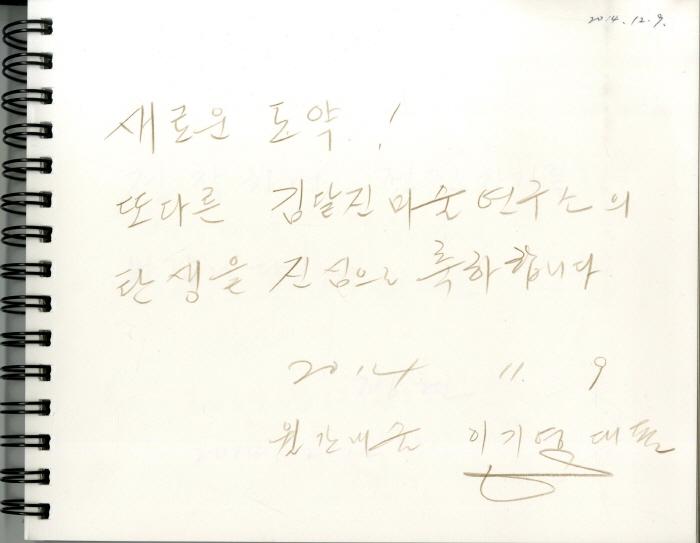 2014. 12. 9.
새로운 도약!
또다른 김달진미술연구소의
탄생을 진심으로 축하합니다
2014 11. 9
월간미술 이기영 대표